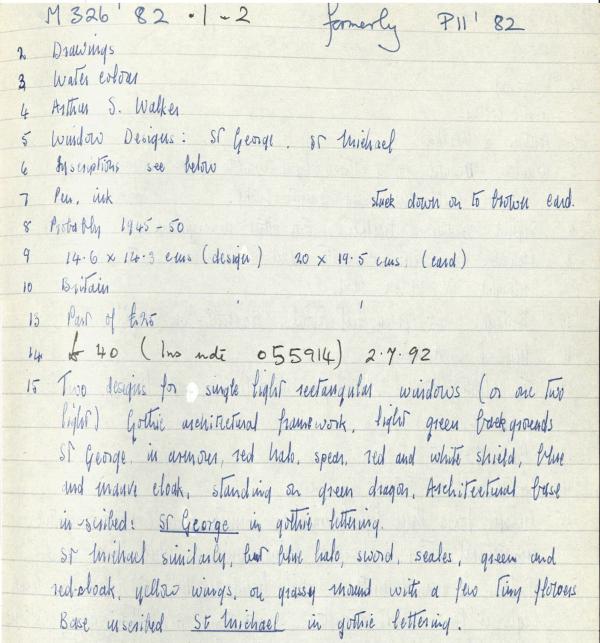 M 326 ' 82 . 1 - 2 formerly P11 ' 82
2 Drawings
3 Water colour
4 Arthur S. Walker
5 Window Designs : St George . St Michael
6 Inscriptions see below
7 Pen, ink stuck down on to brown card.
8 Probably 1945 - 50
9 14.6 x 14.3 cms (design) 20 x 19.5 cms (card)
10 Britain
13 Part of £25
14 £ 40 (Ins note 055914) 2.7.92
15 Two designs for single light rectangular windows (or one two
light) Gothic architectural framework, light green backgrounds
St George, in armour, red halo, spear, red and white shield, blue
and mauve cloak, standing on green dragon. Architectural base
in-scribed: St George in gothic lettering.
St Michael similarly, but blue halo, sword, scales, green and
red-cloak, yellow wings, on grassy mound with a few tiny flowers
Base inscribed St Michael in gothic lettering.